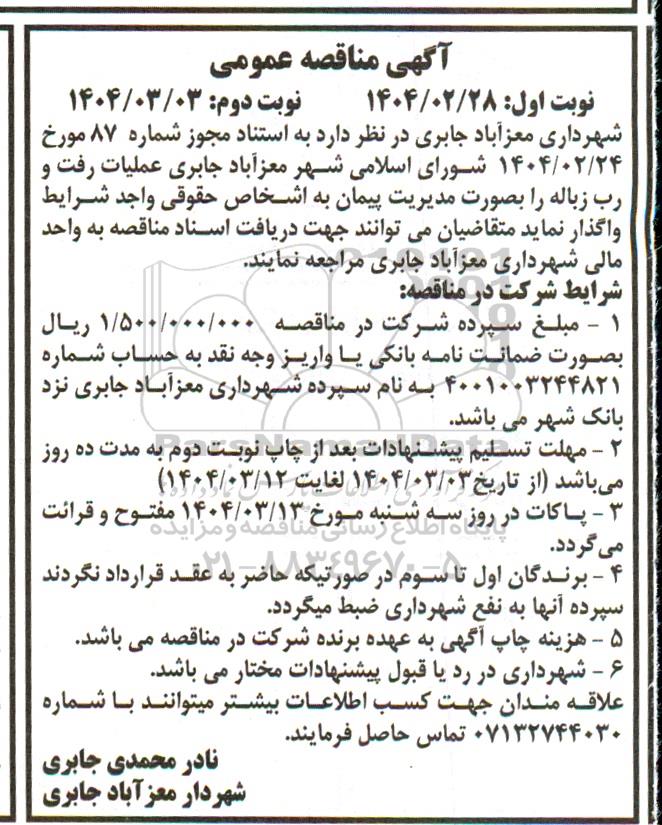 آگهی مناقصه عمومی
نوبت اول: ۱۴۰۴/۰۲/۲۸ نوبت دوم: ۱۴۰۴/۰۳/۰۳
شهرداری معزآباد جابری در نظر دارد به استناد مجوز شماره ۸۷ مورخ
۱۴۰۴/۰۲/۲۴ شورای اسلامی شهر معزآباد جابری عملیات رفت و
رب زباله را بصورت مدیریت پیمان به اشخاص حقوقی واجد شرایط
واگذار نماید متقاضیان می توانند جهت دریافت اسناد مناقصه به واحد
مالی شهرداری معزآباد جابری مراجعه نمایند.
شرایط شرکت در مناقصه:
۱ - مبلغ سپرده شرکت در مناقصه ۱/۵۰۰/۰۰۰/۰۰۰ ریال
بصورت ضمانت نامه بانکی یا واریز وجه نقد به حساب شماره
۴۰۰۱۰۰۳۲۴۴۸۲۱ به نام سپرده شهرداری معزآباد جابری نزد
بانک شهر می باشد.
۲ - مهلت تسلیم پیشنهادات بعد از چاپ نوبت دوم به مدت ده روز
می‌باشد (از تاریخ ۱۴۰۴/۰۳/۰۳ لغایت ۱۴۰۴/۰۳/۱۲)
۳ - پاکات در روز سه شنبه مورخ ۱۴۰۴/۰۳/۱۳ مفتوح و قرائت
می‌گردد.
۴ - برندگان اول تا سوم در صورتیکه حاضر به عقد قرارداد نگردند
سپرده آنها به نفع شهرداری ضبط میگردد.
۵ - هزینه چاپ آگهی به عهده برنده شرکت در مناقصه می باشد.
۶ - شهرداری در رد یا قبول پیشنهادات مختار می باشد.
علاقه مندان جهت کسب اطلاعات بیشتر میتوانند با شماره
۰۷۱۳۲۷۴۴۰۳۰ تماس حاصل فرمایند.
نادر محمدی جابری
شهردار معزآباد جابری
ParsNamadData
پایگاه اطلاع رسانی مناقصه و مزایده
۰۲۱-۸۸۳۴۹۶۷۰-۵